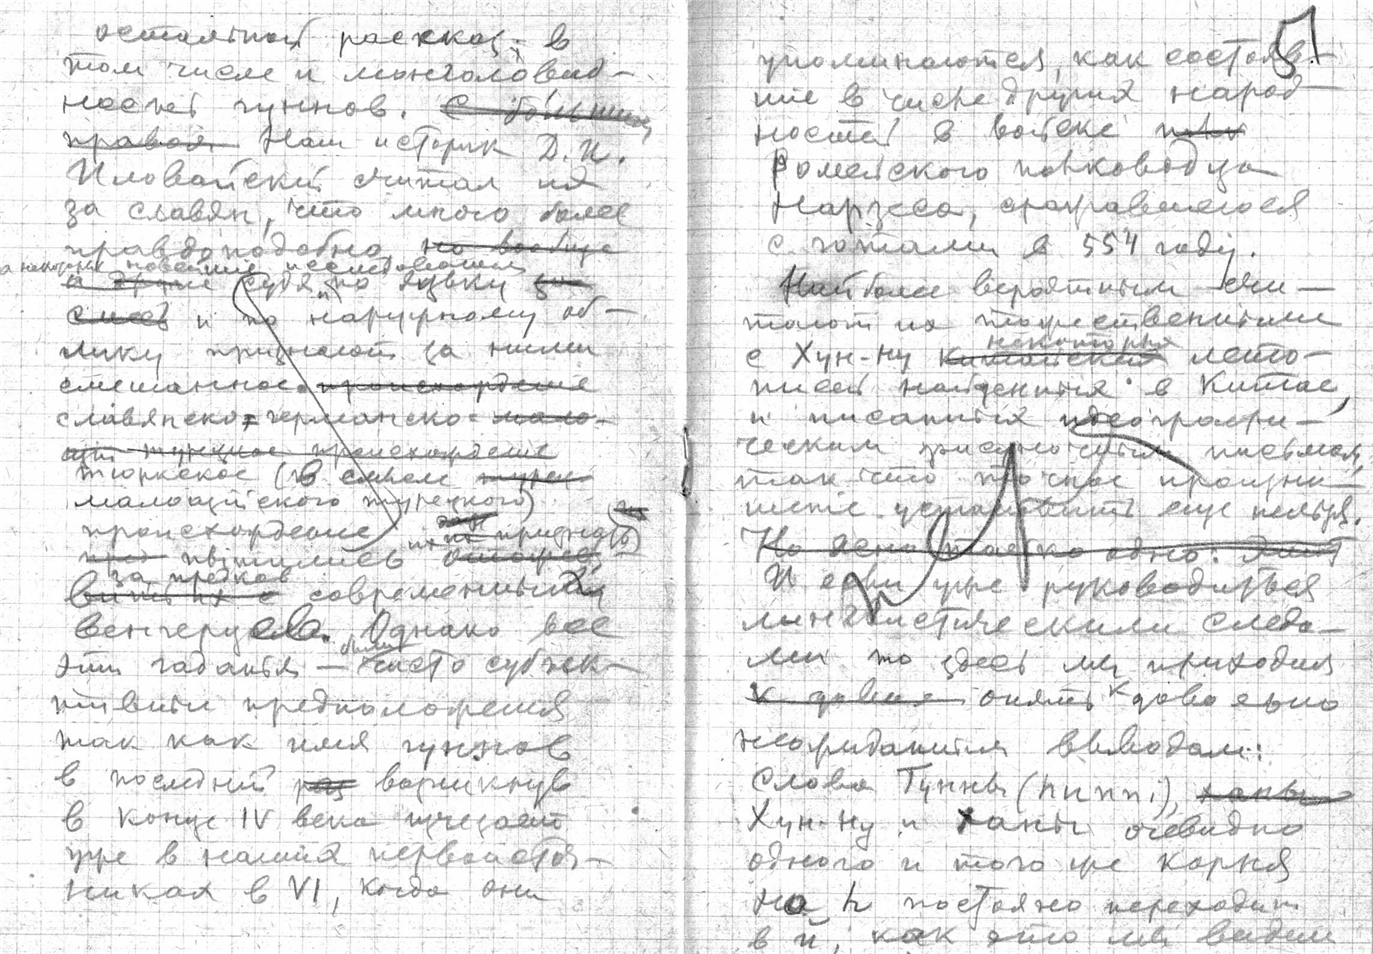 остальной рассказ, в
том числе и монголовид-
ность гуннов. С большим
правом Наш историк Д.И.
Иловайский считал их
за славян, что много более
правдоподобно но вообще
а некоторые новейшие исследования
судя по языку
и по наружному об-
лику признают за ними
смешанное происхождение
славянско-германско-
происхождение
тюркское (в смысле
малоазийского турецкого)
происхождение
признать
явившись
за предков
современных
венгерцев. Однако все
эти гадания — чисто субъек-
тивные предположения
так как имя гуннов
в последний раз возникнув
в конце IV века исчезает
уже в наших первоисточ-
никах в VI, когда они
51
упоминаются, как состояв-
шие в числе других народ-
ностей в войске
Ромейского полководца
Нарзеса, сражавшегося
с готами в 554 году.
Наиболее вероятным счи-
тают их тожественными
некоторых
с Хун-ну китайских лето-
писей найденных в Китае,
и писанных идеографи-
ческим рисуночным письмом,
так что точное произно-
шение установить еще нельзя.
Но ясно только одно:
И если уже руководиться
лингвистическими следа-
ми то здесь мы приходим
опять к довольно
неожиданным выводам:
Слова Гунны (hunni), ханы
Хун-ну и ханы очевидно
одного и того же корня
На h постоянно переходит
в й, как это мы видим